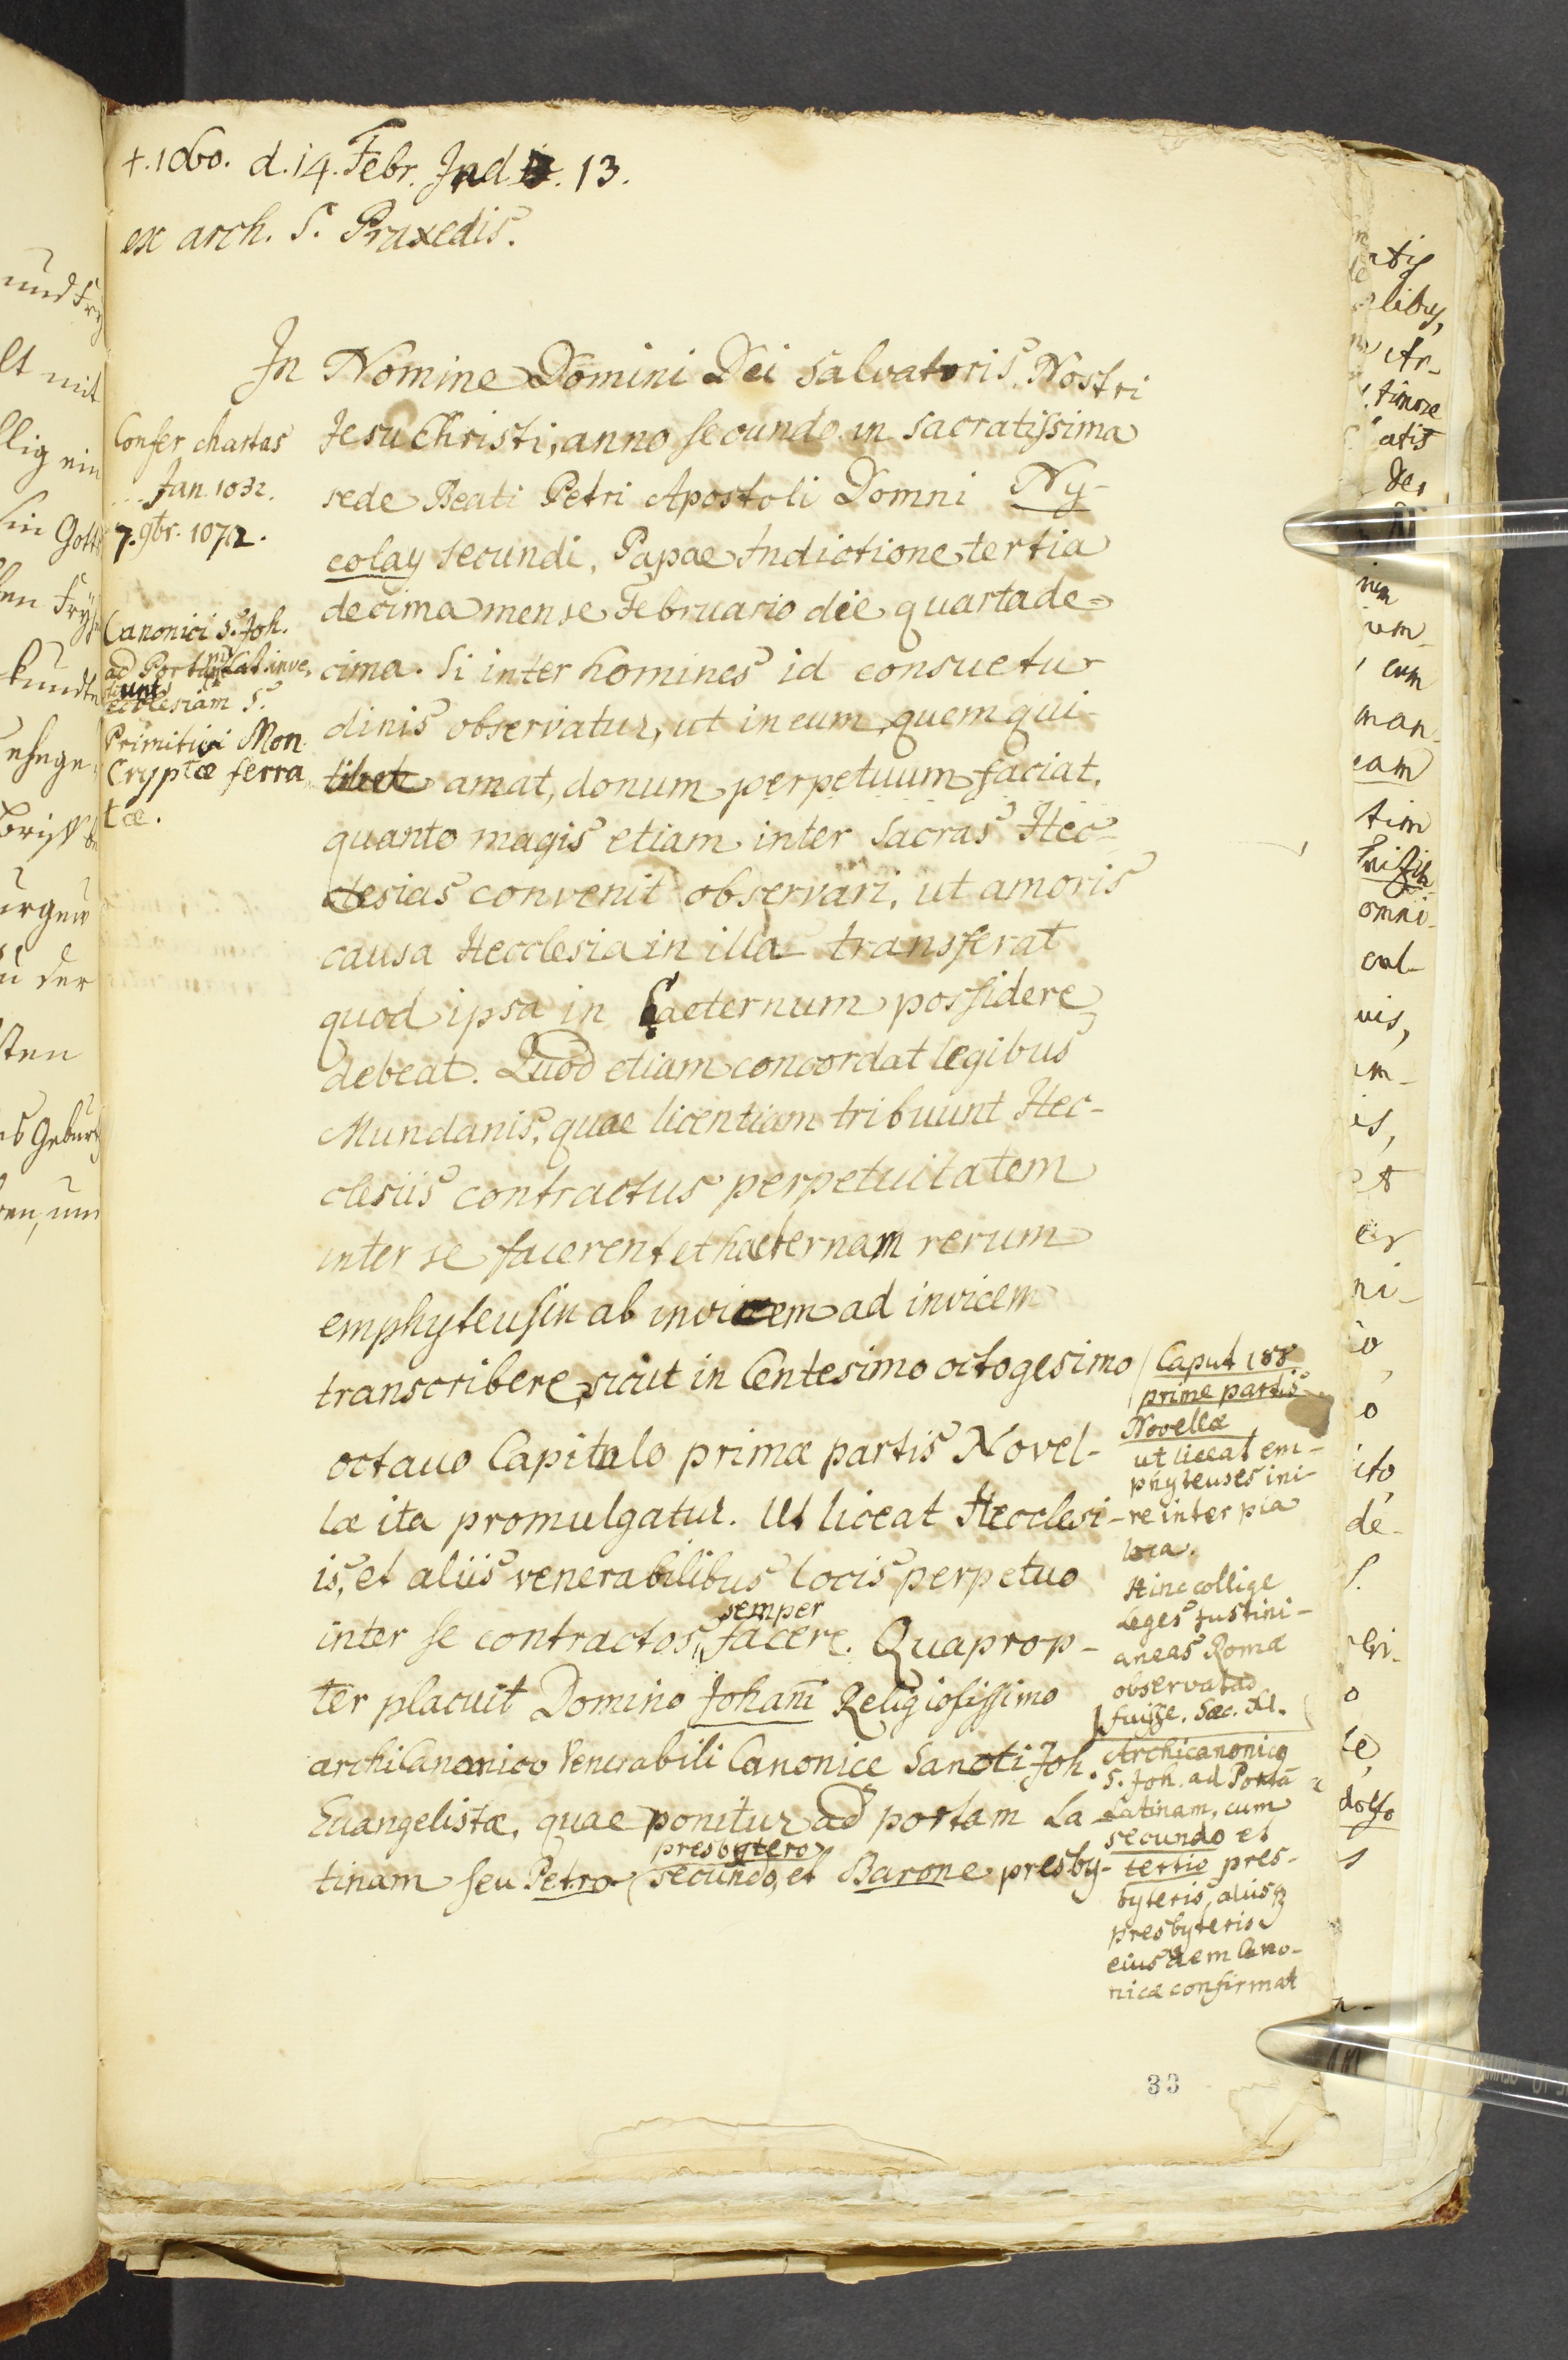 +. 1060. d. 14. Febr. Ind. 13.
ex arch. S. Praxedis.
In Nomine Domini Dei Salvatoris Nostri
Jesu Christi, anno secundo in sacratissima
sede Beati Petri Apostoli Domni Ny-
colay secundi, Papae Indictione tertia
decima mense Februario die quartade-
cima. Si inter homines id consuetu-
dinis observatur, ut in eum quem qui-
libet amat, donum perpetuum faciat,
quanto magis etiam inter sacras Hec-
clesias convenit observari, ut amoris
causa Hecclesia in illa transferat
quod ipsa in haeternum possidere
debeat. Quod etiam concordat legibus
Mundanis, quae licentiam tribuunt Hec-
clesiis contractus perpetuitatem
inter se facerent et haeternam rerum
emphyteusin ab invicem ad invicem
transcribere, sicut in Centesimo octogesimo
octauo Capitulo primæ partis Novel-
læ ita promulgatur. Ut liceat Hecclesi-
is, et aliis venerabilibus locis perpetuo
inter se contractos semper facere. Quaprop-
ter placuit Domino Johani Religiosissimo
archiCanonico Venerabili Canonice Sancti Joh.
Euangelistæ, quae ponitur ad portam La-
tinam seu Petro presbytero secundo, et Barone presby-
Confer chartas
Jan. 1032.
7. 9br. 1072.
Canonici S. Joh.
ad Portam Lat. inve
stiunt
ecclesiam S.
Primitivi Mon.
Cryptæ ferra
tæ.
Caput 188
prime partis
Novellæ
ut liceat em-
phyteuses ini-
re inter pia
loca.
Hinc collige
Leges Justini-
aneas Romæ
observatas
fuisse. Sæc. XI.
Archicanonicus
S. Joh. ad Portã
Latinam, cum
secundo et
tertio pres-
byteris, aliisq
presbyteris
eiusdem Cano-
nicæ confirmat
33